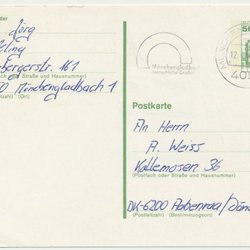 der
Jörg
ling
bergerstr. 161
50 Mönchengladbach 1
(Postleitzahl) (Ort)
(Postfach oder Straße und Hausnummer)
Mönchengladb
Postkarte
An Herrn
A. Weiss
Kallemosen 36
(Postfach oder Straße und Hausnummer)
DK-6200 Aabenraa/Däne
(Postleitzahl) (Bestimmungsort)